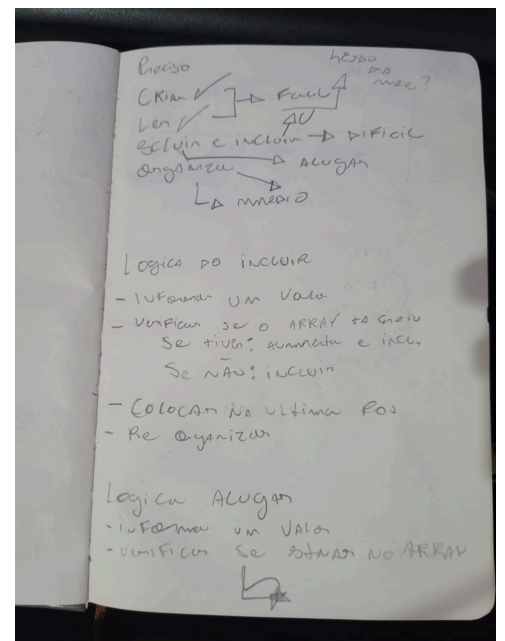 Preciso
CRIAR
Ler
Facil
DA
MÃE?
Excluir e incluir DIFICIL
organizar ALUGAR
MMEDIO
LOGICA DO INCLUIR
- INFORMAR UM Valo
- Verificar se o ARRAY tá cheio
Se tiver: aumenta e inclu.
Se NÃO: INCLUIR
- COLOCAR NA ULTIMA POS
- Re organizar
Logica ALUGAR
- INFORMAR UM VALOR
- verificar se NO ARRAY